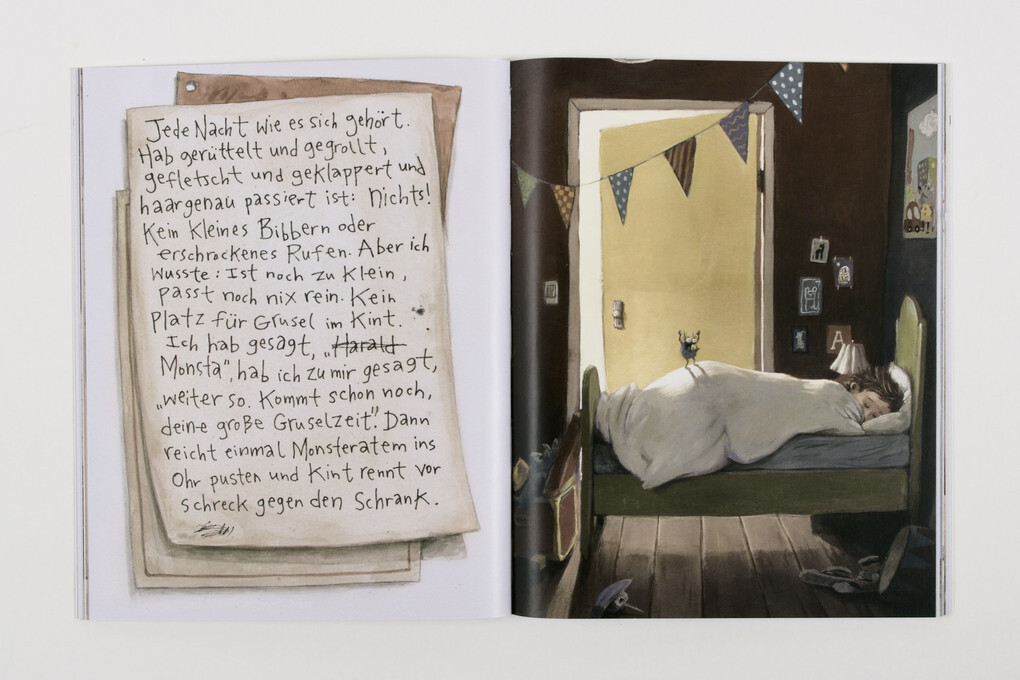 Jede Nacht wie es sich gehört.
Hab gerüttelt und gegrollt,
gefletscht und geklappert und
haargenau passiert ist: Nichts!
Kein kleines Bibbern oder
erschrockenes Rufen. Aber ich
wusste: Ist noch zu klein,
passt noch nix rein. Kein
Platz für Grusel im Kint.
Ich hab gesagt, „Harald
Monsta", hab ich zu mir gesagt,
„weiter so. Kommt schon noch,
dein-e große Gruselzeit". Dann
reicht einmal Monsteratem ins
Ohr pusten und Kint rennt vor
schreck gegen den Schrank.
A